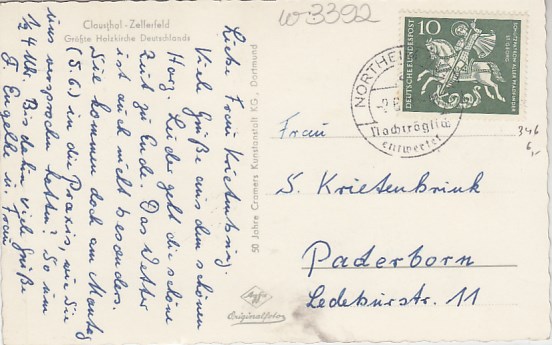 Clausthal-Zellerfeld
Größte Holzkirche Deutschlands
w 3392
Liebe Frau Krietenbrink.
Viele Grüße aus dem schönen
Harz. Leider geht die schöne
Zeit zu Ende. Das Wetter
ist auch nicht besonders.
Sie kommen doch am Montag
(5.6.) in die Praxis, wie Sie
uns versprochen hatten? So um
1/4 Uhr. Bis dahin viele Grüße
J. Engelke u. Frau
50 Jahre Cramers Kunstanstalt KG., Dortmund
Agfa
Originalfoto
10
DEUTSCHE BUNDESPOST
SCHUTZPATRON ALLER PFADFINDER
ST. GEORG
NORTHEI
Nachträglich
entwertet
346
6,-
Frau
S. Krietenbrink
Paderborn
Ledeburstr. 11